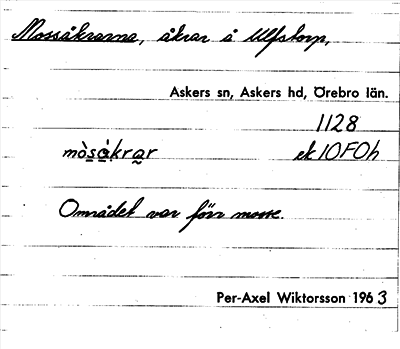 Mossåkrarna, åkrar å Ulfstorp,
Askers sn, Askers hd, Örebro län.
1128
mòsåkrar ek 10FOh
Området var förr mosse.
Per-Axel Wiktorsson 1963